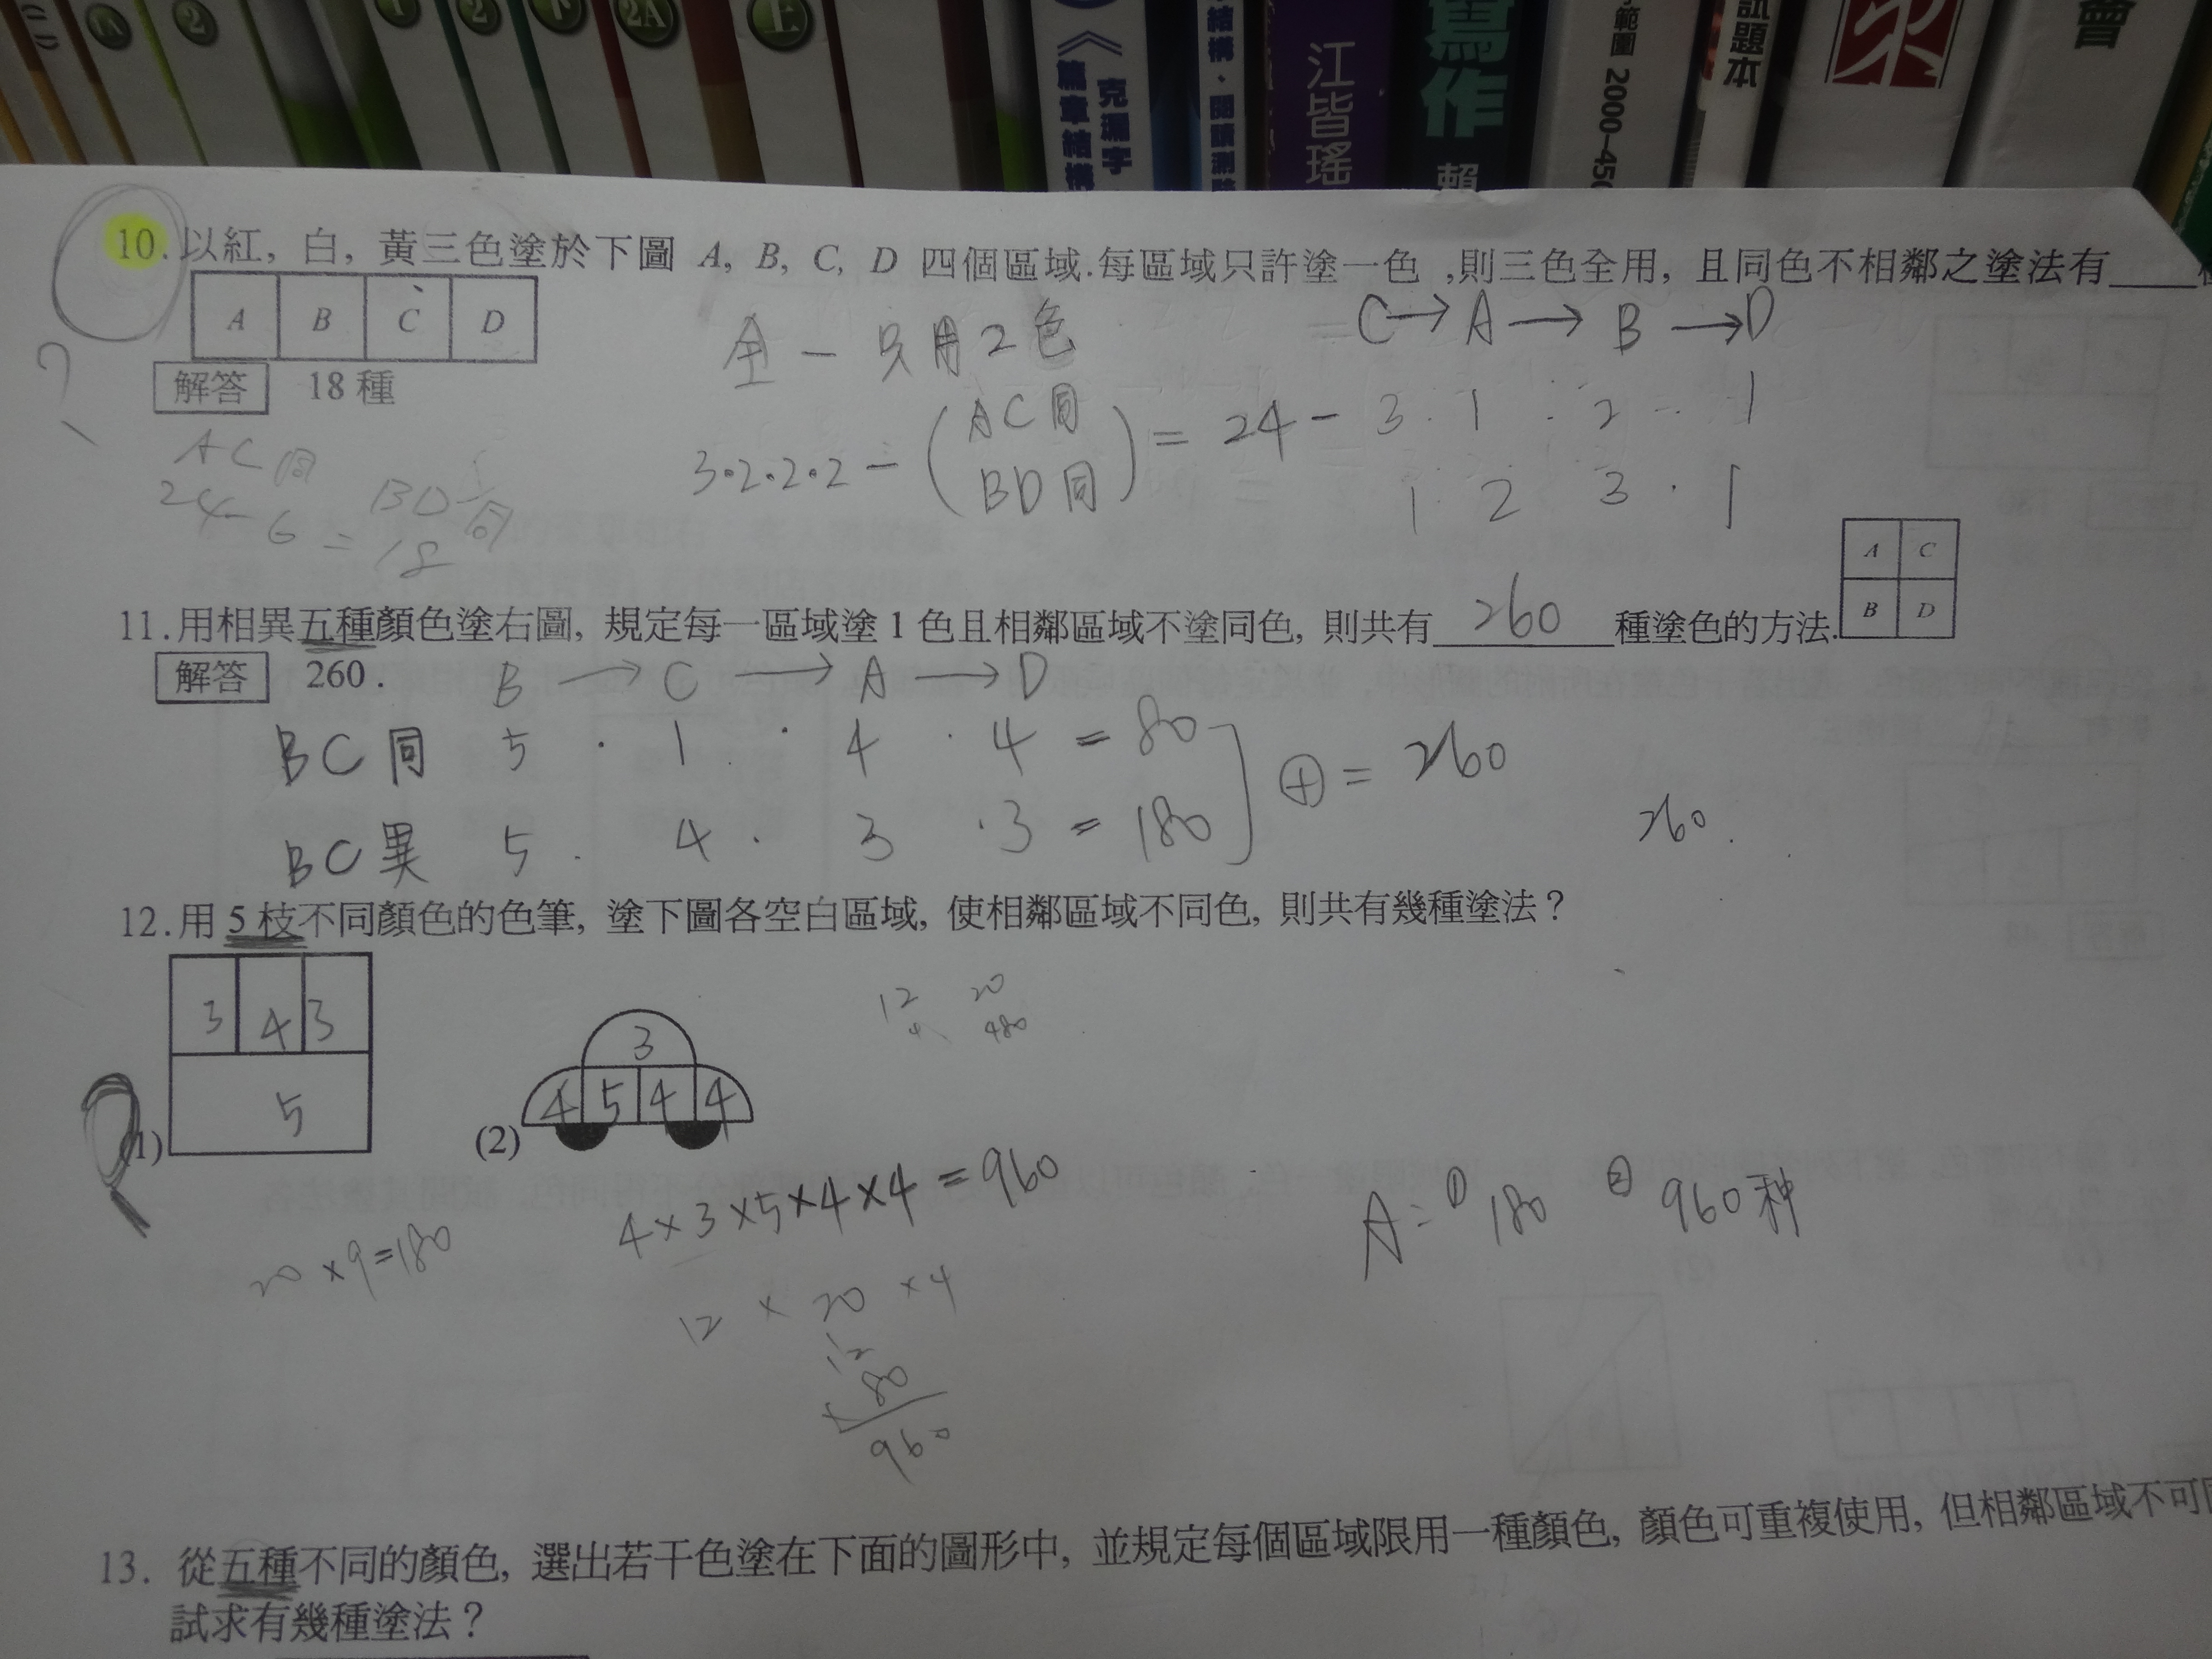 1A
2
1
2
下
2A
上
《篇章結構
克漏字
結構．閱讀測驗
江皆瑤
寫作
賴
範圍 2000-450
試題本
會
10. 以紅, 白, 黃三色塗於下圖 A, B, C, D 四個區域.每區域只許塗一色 ,則三色全用, 且同色不相鄰之塗法有____種
A B C D
C→A→B→D
全－只用2色
解答 18種
3·2·2·2－(AC同 BD同)=24－3·1·2·1
1·2 3·1
AC同
BD同
24-6=18
A C
B D
11.用相異五種顏色塗右圖, 規定每一區域塗1色且相鄰區域不塗同色, 則共有 260 種塗色的方法.
解答 260 .
B→C→A→D
BC同 5·1·4·4=80
⊕=260
BC異 5·4·3·3=180
260.
12.用5枝不同顏色的色筆, 塗下圖各空白區域, 使相鄰區域不同色, 則共有幾種塗法？
12 20
4 480
3 4 3
5
(1)
3
4 5 4 4
(2)
4×3×5×4×4=960
A=① 180 ② 960种
20×9=180
12×20×4
12
×80
960
13. 從五種不同的顏色, 選出若干色塗在下面的圖形中, 並規定每個區域限用一種顏色, 顏色可重複使用, 但相鄰區域不可同
試求有幾種塗法？